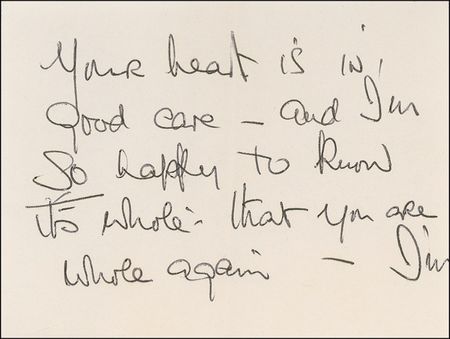 Your heart is in
good care – and I'm
So happy to know
it's whole – that you are
whole again – I'm